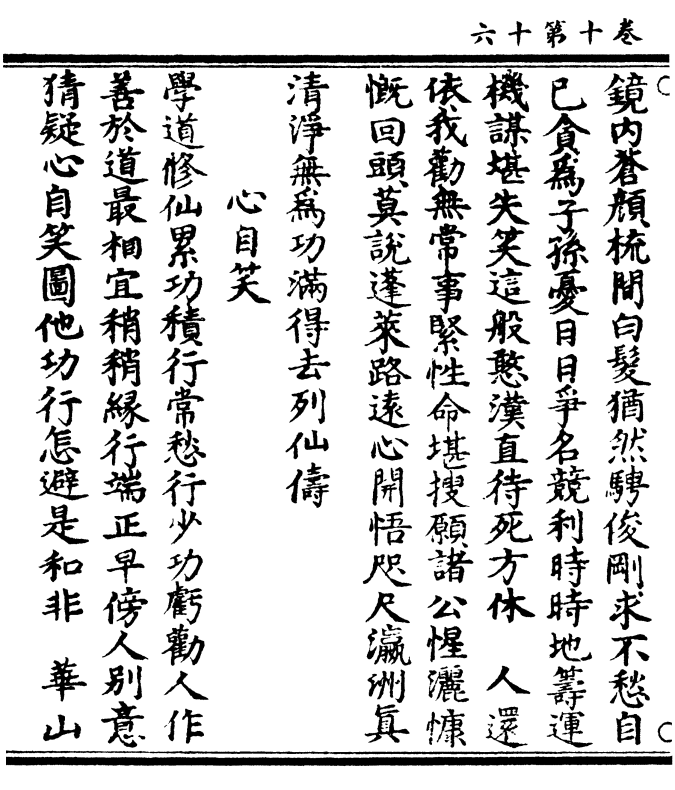 卷十第十六
鏡内蒼顔梳間白髮猶然騁俊剛求不愁自
已貪爲子孫憂日日爭名競利時時地籌運
機謀堪失笑這般憨漢直待死方休　人還
依我勸無常事緊性命堪搜願諸公惺灑慷
慨回頭莫說蓬萊路遠心開悟咫尺瀛洲真
清淨無爲功滿得去列仙儔
心自笑
學道修仙累功積行常愁行少功虧勸人作
善於道最相宜稍稍緣行端正早傍人別意
猜疑心自笑圖他功行怎避是和非　華山